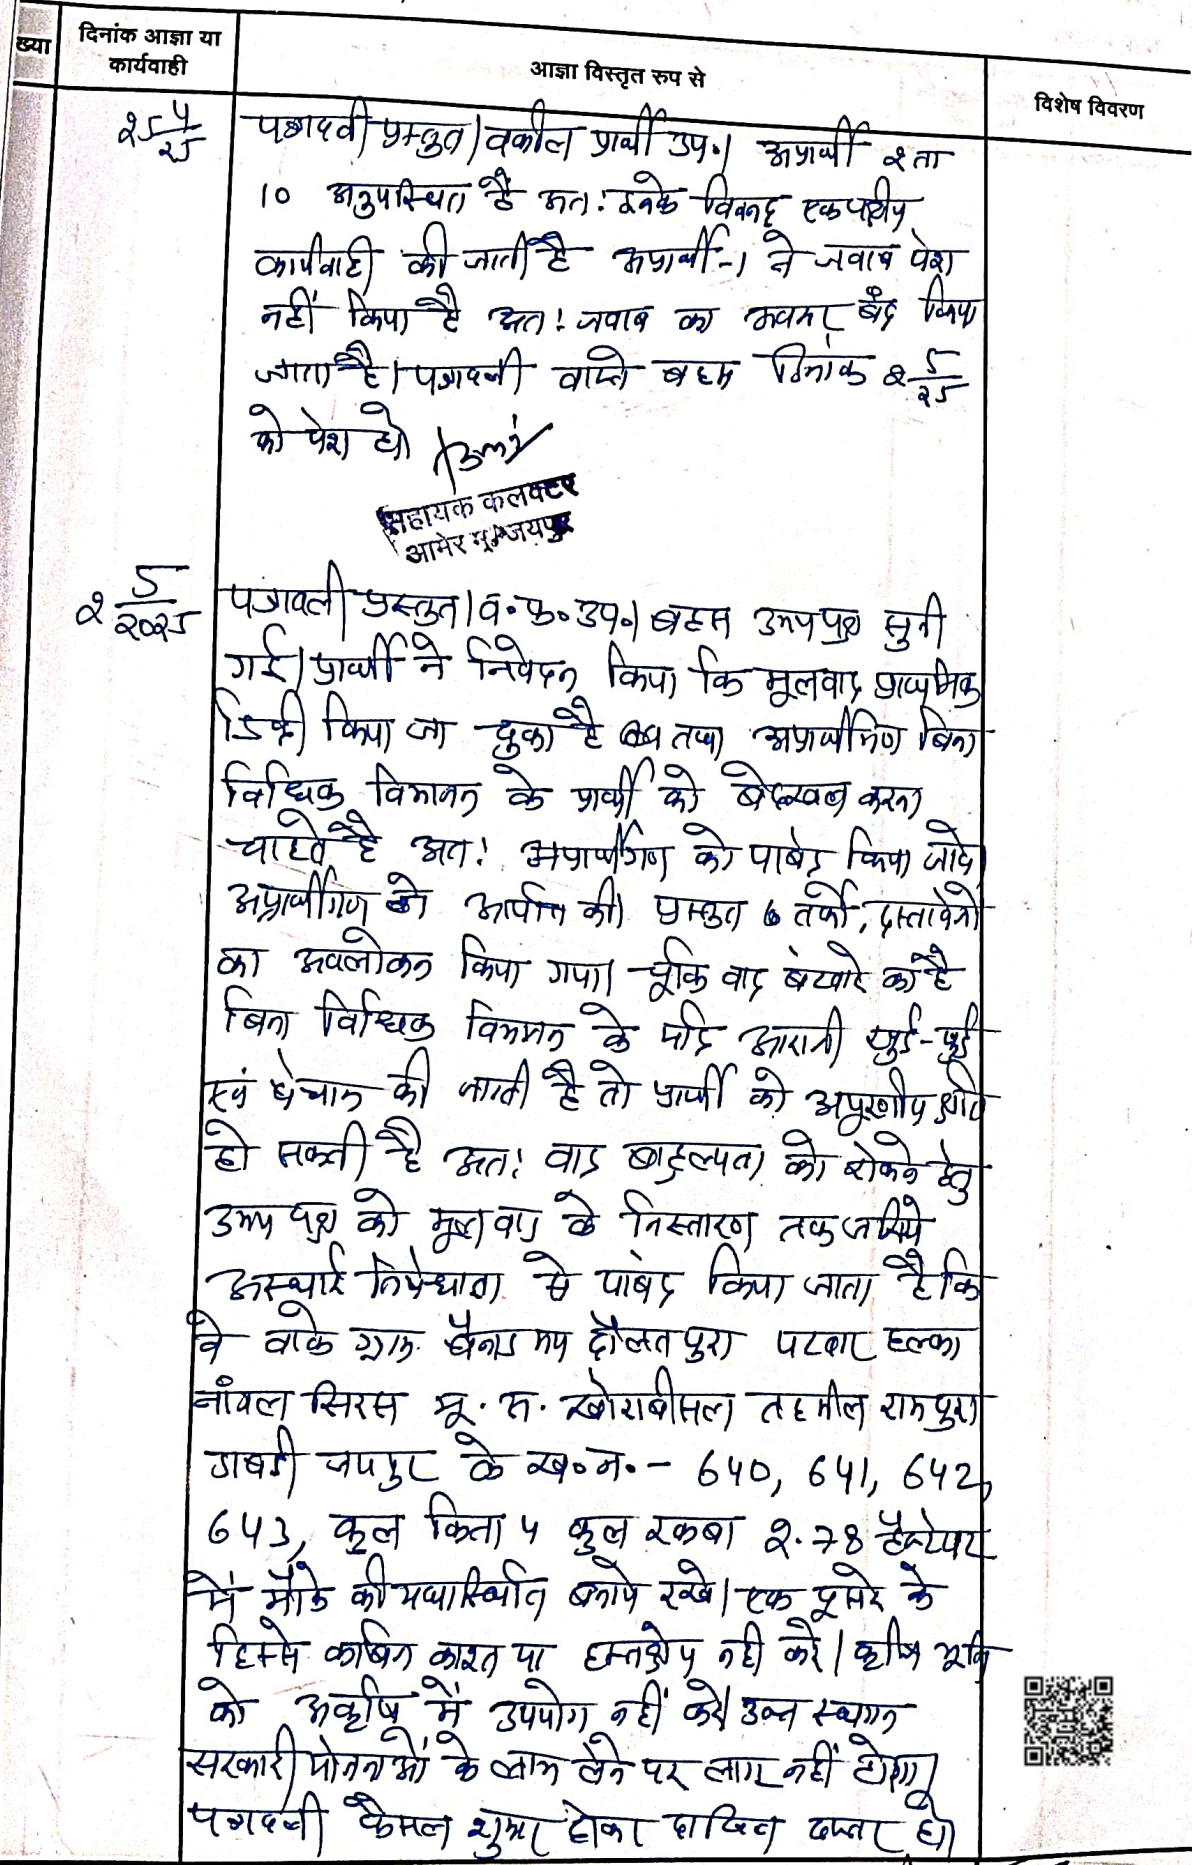 ख्या
दिनांक आज्ञा या
कार्यवाही
आज्ञा विस्तृत रुप से
विशेष विवरण
२५ ४/२५
पत्रावली प्रस्तुत। वकील प्रार्थी उप.। अप्रार्थी २ ता
10 अनुपस्थित है अत: इनके विरूद्ध एकपक्षीय
कार्यवाही की जाती है अप्रार्थी-1 ने जवाब पेश
नहीं किया है अत: जवाब का अवसर बंद किया
जाता है। पत्रावली वास्ते बहस दिनांक २ ५/२५
को पेश हो
सहायक कलक्टर
आमेर मु. जयपुर
२ ५/२०२५
पत्रावली प्रस्तुत। व.फ.उप.। बहस उभयपक्ष सुनी
गई। प्रार्थी ने निवेदन किया कि मूलवाद प्राथमिक
डिक्री किया जा चुका है तथा अप्रार्थीगण बिना
विधिक विभाजन के प्रार्थी को बेदखल करना
चाहते है अत: अप्रार्थीगण को पाबंद किया जावे।
अप्रार्थीगण ने आपत्ति की। प्रस्तुत तर्को, दस्तावेजो
का अवलोकन किया गया। चूंकि वाद बंटवारे का है
बिना विधिक विभाजन के यदि आराजी खुर्द-बुर्द
एवं बेचान की जाती है तो प्रार्थी को अपूरणीय क्षति
हो सकती है अत: वाद बाहुल्यता को रोकने हेतु
उभय पक्ष को मूलवाद के निस्तारण तक जरिये
अस्थाई निषेधाज्ञा से पाबंद किया जाता है कि
वे वाके ग्राम बैनाड मय दौलतपुरा पटवार हल्का
नांगल सिरस भू.अ. खोराबीसल तहसील रामपुरा
डाबडी जयपुर के ख०न०- 640, 641, 642,
643, कुल किता ४ कुल रकबा २.78 हैक्टेयर
में मौके की यथास्थिति बनाये रखे। एक दूसरे के
हिस्से काबिज काश्त या हस्तक्षेप नही करे। कृषि भूमि
को अकृषि में उपयोग नहीं करे। उक्त स्थगन
सरकारी योजनाओं के लाभ लेने पर लागू नहीं होगा।
पत्रावली फैसल शुमार होकर दाखिल दफ्तर हो